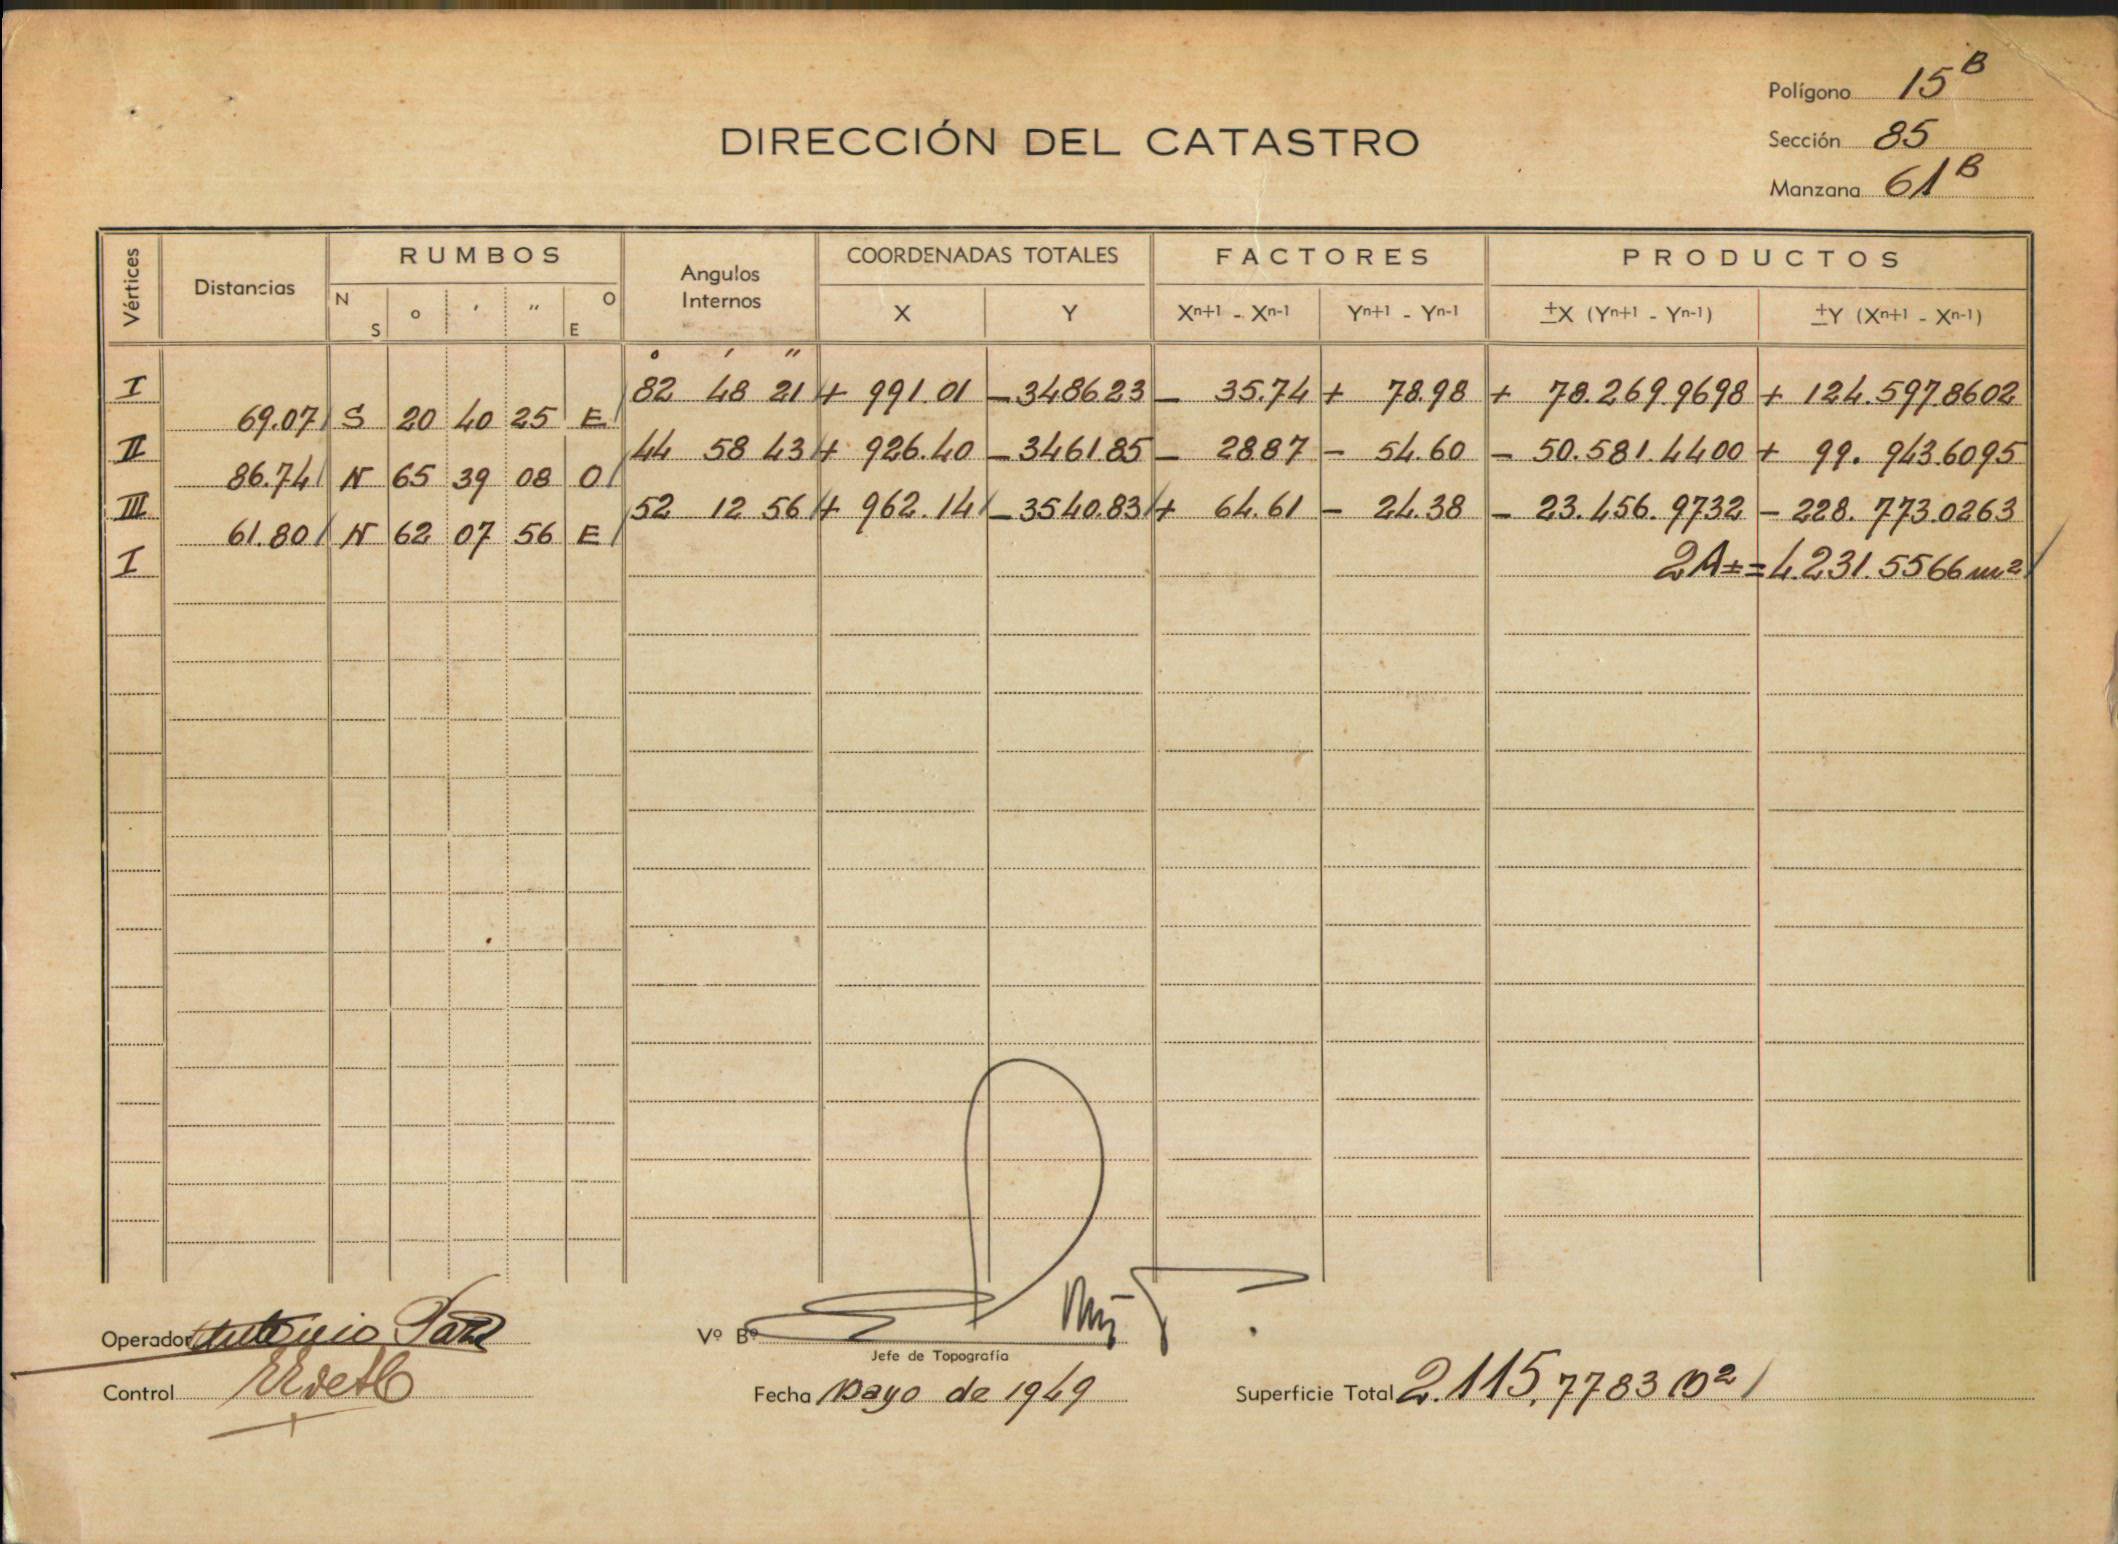 Polígono 15 B
DIRECCIÓN DEL CATASTRO
Sección 85
Manzana 61 B
Vértices Distancias RUMBOS Angulos Internos COORDENADAS TOTALES FACTORES PRODUCTOS
N S ° ' " O E X Y Xn+1 - Xn-1 Yn+1 - Yn-1 ±X (Yn+1 - Yn-1) ±Y (Xn+1 - Xn-1)
° ' "
I 82 48 21 + 991.01 - 3486.23 - 35.74 + 78.98 + 78.269.9698 + 124.597.8602
69.07 S 20 40 25 E
II 44 58 43 + 926.40 - 3461.85 - 28.87 - 54.60 - 50.581.4400 + 99.943.6095
86.74 N 65 39 08 O
III 52 12 56 + 962.14 - 3540.83 + 64.61 - 24.38 - 23.456.9732 - 228.773.0263
61.80 N 62 07 56 E
I 2A± = 4.231.5566 m²
Operador Antonio
Vº Bº
Jefe de Topografía
Control
Fecha Mayo de 1949
Superficie Total 2.115,7783 m²